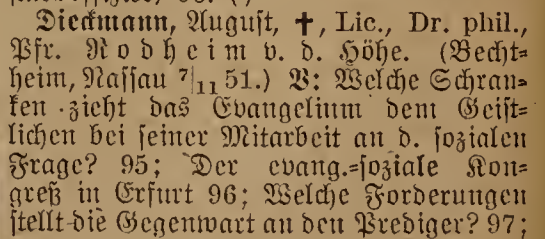 Dieckmann, August, †, Lic., Dr. phil.,
Pfr. Rodheim v. d. Höhe. (Becht=
heim, Nassau 7/11 51.) V: Welche Schran=
ken zieht das Evangelium dem Geist=
lichen bei seiner Mitarbeit an d. sozialen
Frage? 95; Der evang.=soziale Kon=
greß in Erfurt 96; Welche Forderungen
stellt die Gegenwart an den Prediger? 97;